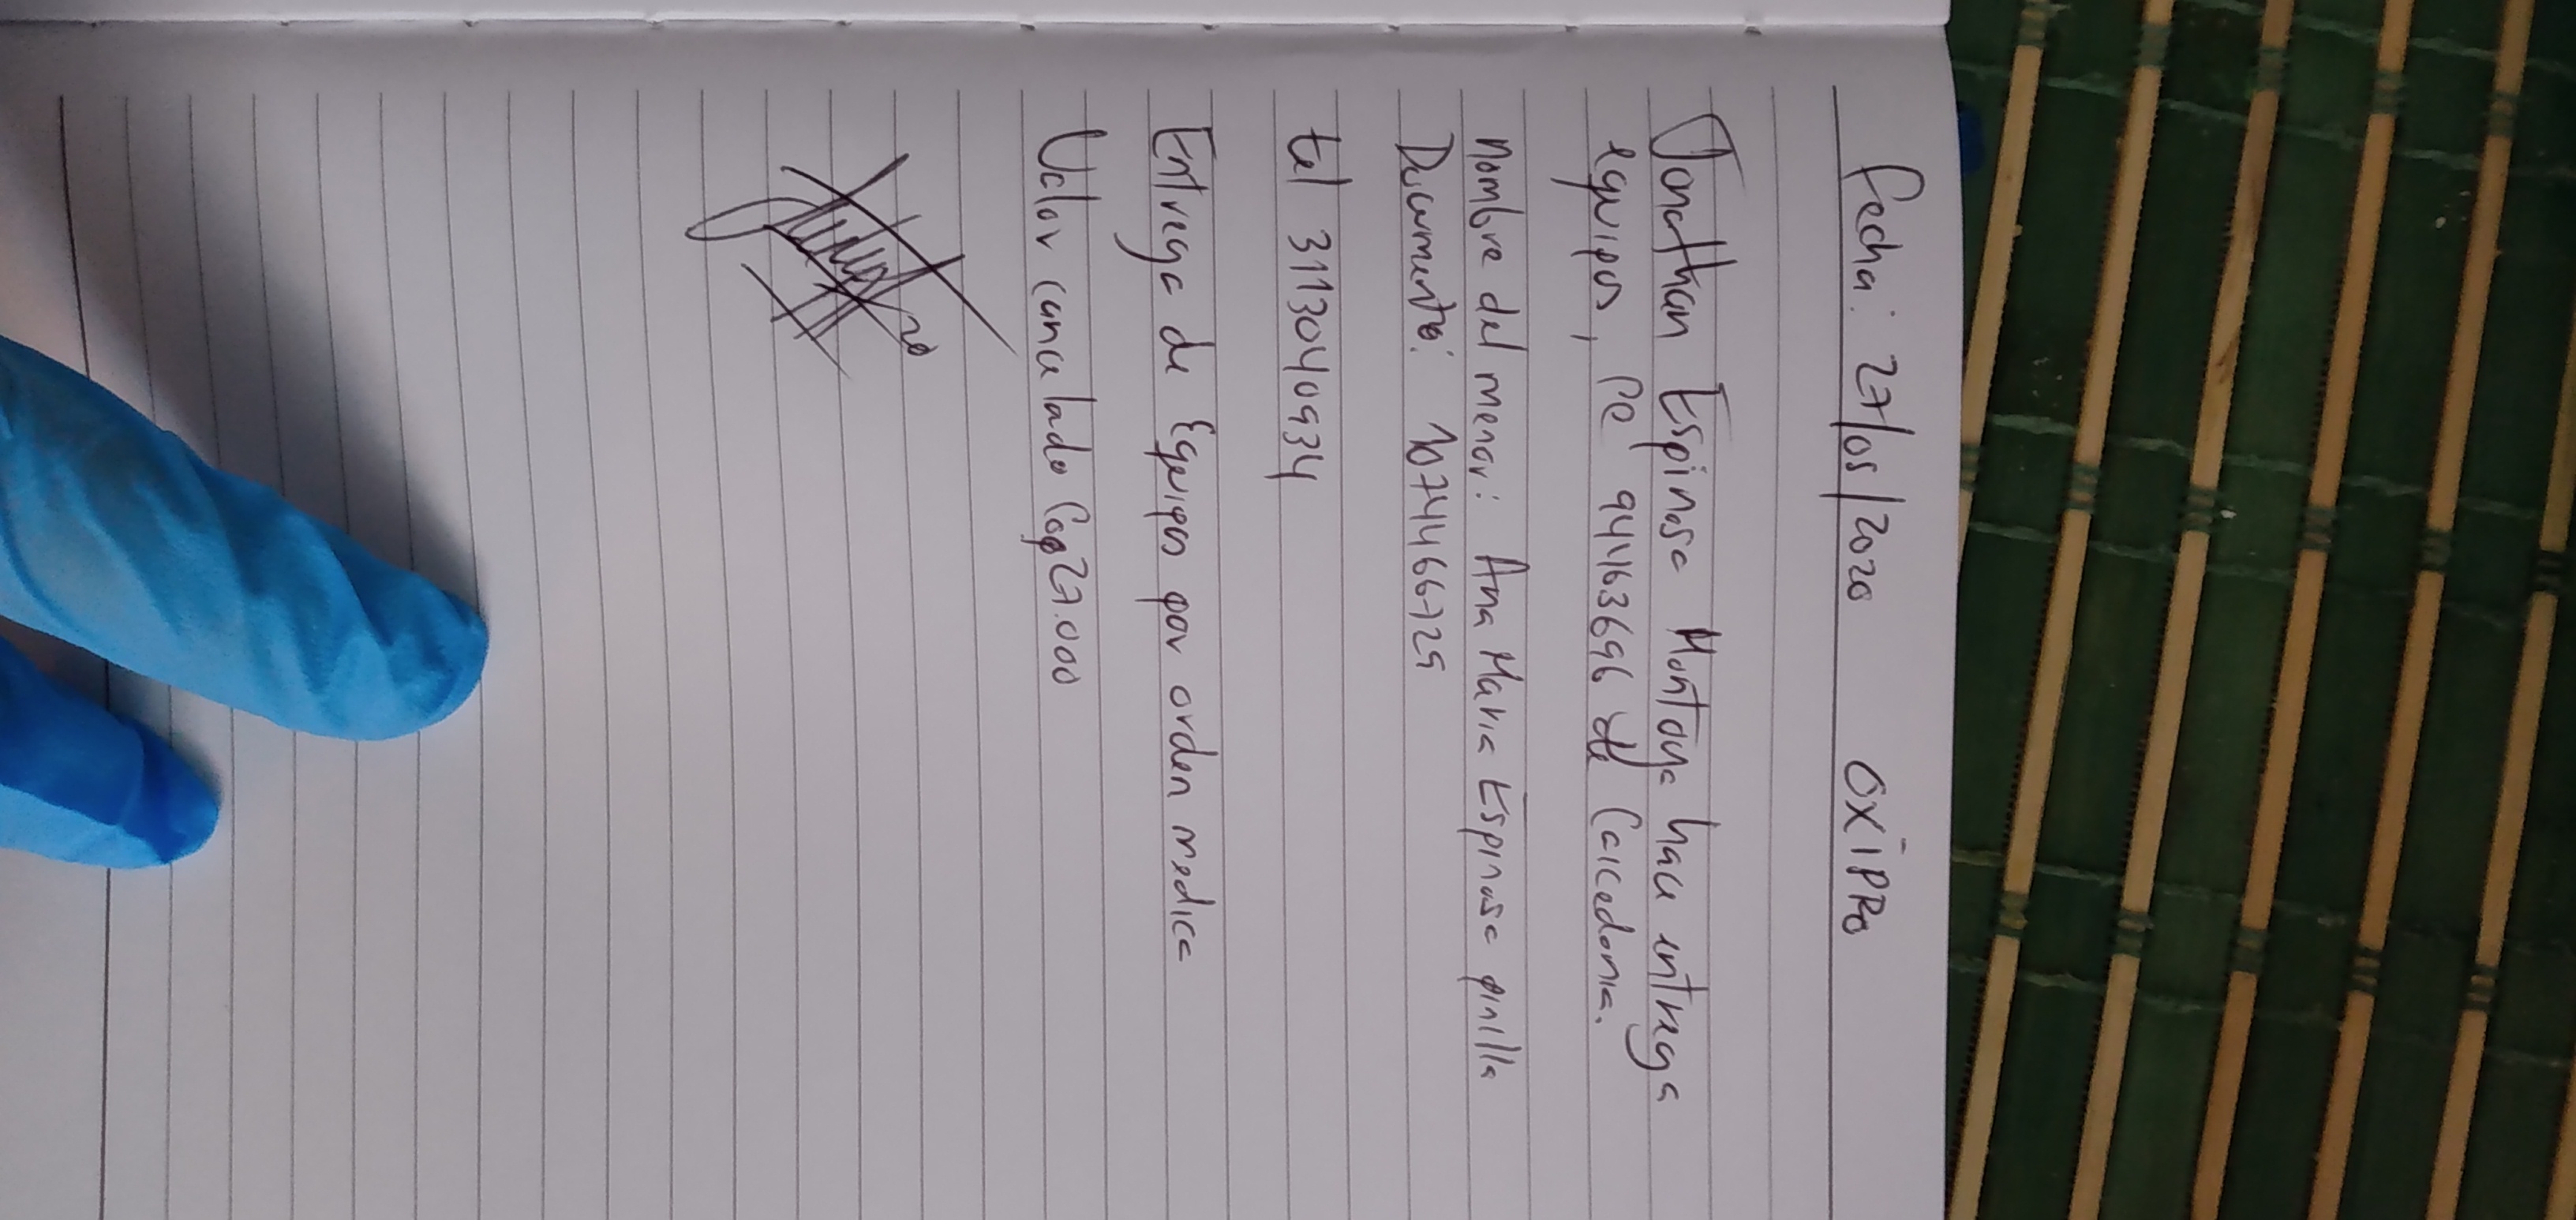 Fecha: 27/05/2020 OXIPRO
Jonathan Espinosa Montoya hace entrega
equipos, CC 94463696 de Caicedonia.
nombre del menor: Ana Maria Espinosa pinilla
Documento: 1074466725
tel 3113040934
Entrega de Equipos por orden medica
Valor cancelado Cop 27.000